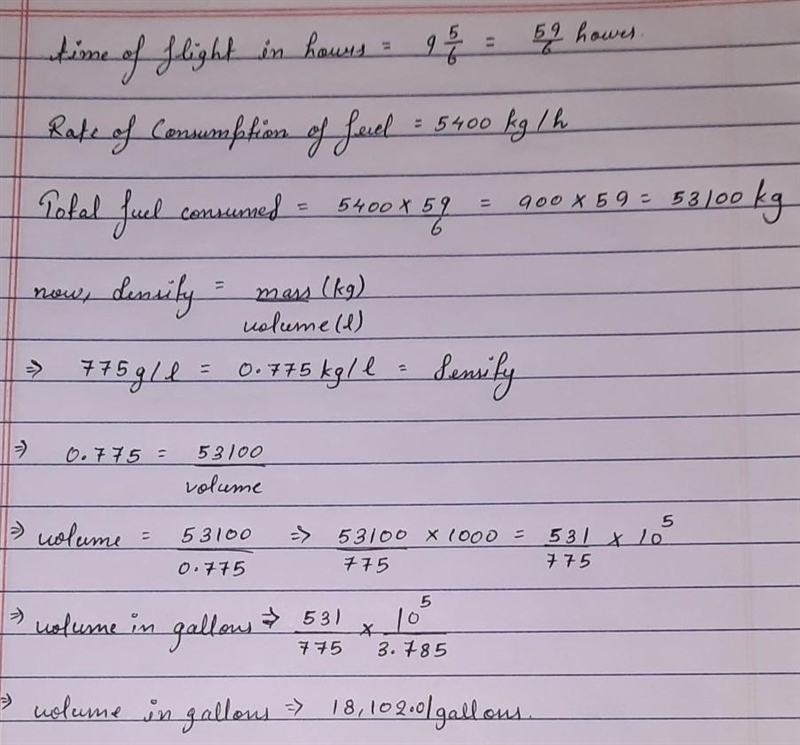 time of flight in hours = 9 5/6 = 59/6 hours.
Rate of Consumption of fuel = 5400 kg/h
Total fuel consumed = 5400 × 59/6 = 900 × 59 = 53100 kg
now, density = mass (kg)/volume (l)
⇒ 775 g/l = 0.775 kg/l = density
⇒ 0.775 = 53100/volume
⇒ volume = 53100/0.775 ⇒ 53100/775 × 1000 = 531/775 × 10^5
⇒ volume in gallons ⇒ 531/775 × 10^5/3.785
⇒ volume in gallons ⇒ 18,102.01 gallons.